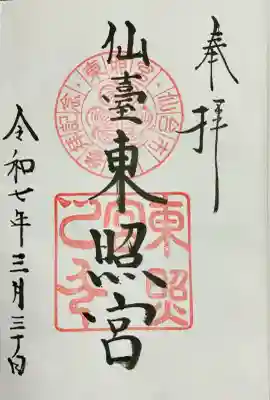 奉拝
仙臺東照宮
令和七年三月三十日
東照宮
仙台市